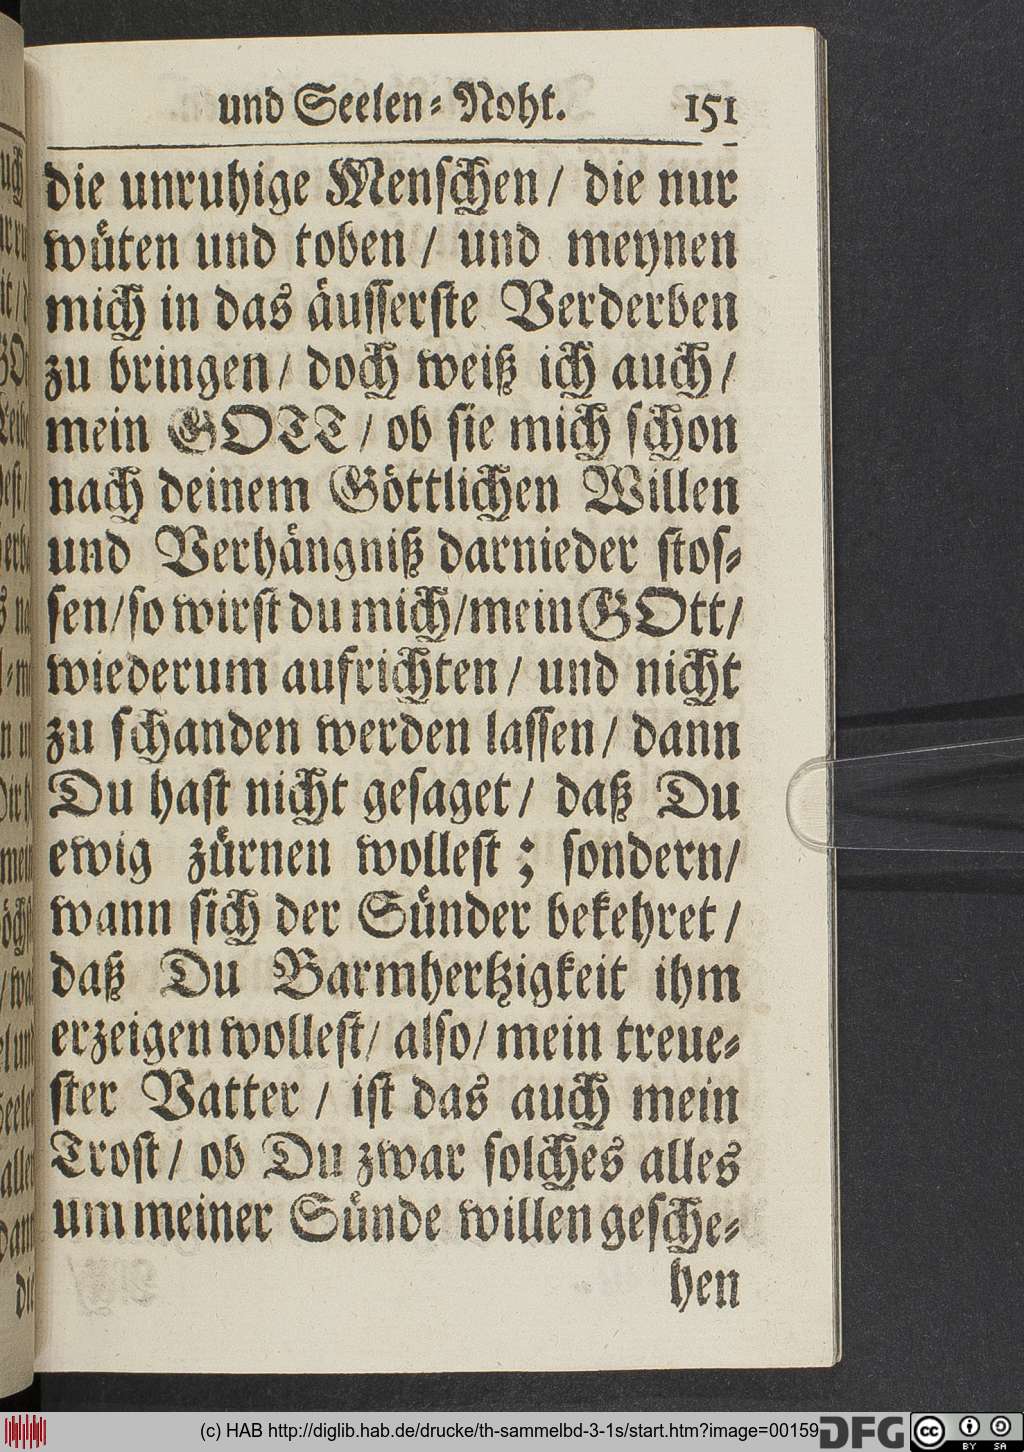 und Seelen-Noht. 151
die unruhige Menschen/ die nur
wüten und toben/ und meynen
mich in das äusserste Verderben
zu bringen/ doch weiß ich auch/
mein GOTT/ ob sie mich schon
nach deinem Göttlichen Willen
und Verhängniß darnieder stos-
sen/so wirst du mich/mein GOtt/
wiederum aufrichten/ und nicht
zu schanden werden lassen/ dann
Du hast nicht gesaget/ daß Du
ewig zürnen wollest; sondern/
wann sich der Sünder bekehret/
daß Du Barmhertzigkeit ihm
erzeigen wollest/ also/ mein treue-
ster Vatter/ ist das auch mein
Trost/ ob Du zwar solches alles
um meiner Sünde willen gesche-
hen
(c) HAB http://diglib.hab.de/drucke/th-sammelbd-3-1s/start.htm?image=00159
DFG cc BY SA